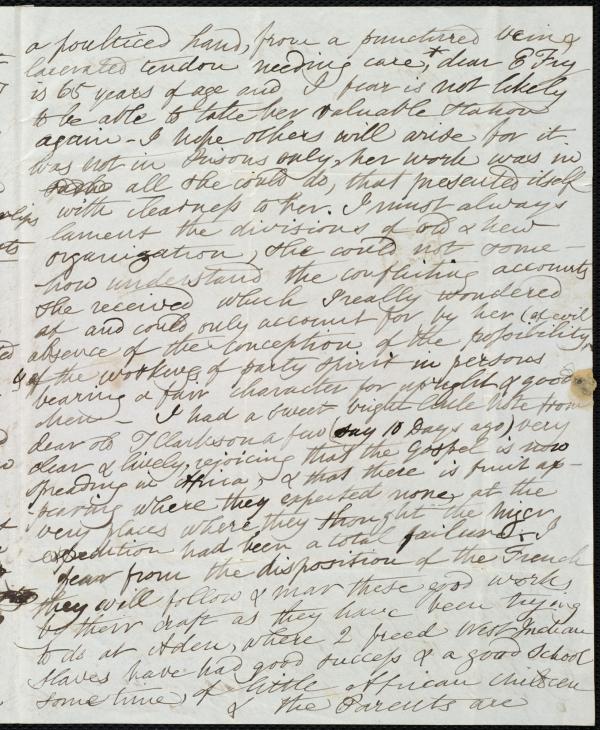 a poulticed hand, from a punctured vein &
lacerated tendon needing care,* dear E Fry
is 65 years of age and I fear is not likely
to be able to take her valuable station
again - I hope others will arise for it
was not in Prisons only, her work was in
all she could do, that presented itself
with clearness to her. I must always
lament the divisions of old & new
organization, she could not some-
how understand the conflicting accounts
she received which I really wondered
at and could only account for by her (of evil
absence of the conception of the possibility,
of the working of party spirit in persons
bearing a fair character for upright & good
men - I had a sweet bright little note from
dear old T Clarkson a few (say 10 Days ago) very
clear & lively, rejoicing that the Gospel is now
spreading in Africa, & that there is fruit ap-
pearing where they expected none, at the
very places where they thought the Niger
expedition had been a total failure. I
fear from the disposition of the French
they will follow & mar these good works
by their craft as they have been trying
to do at Aden, where 2 freed West Indian
slaves have had good success & a good School
some time, of little African children
& the Parents are